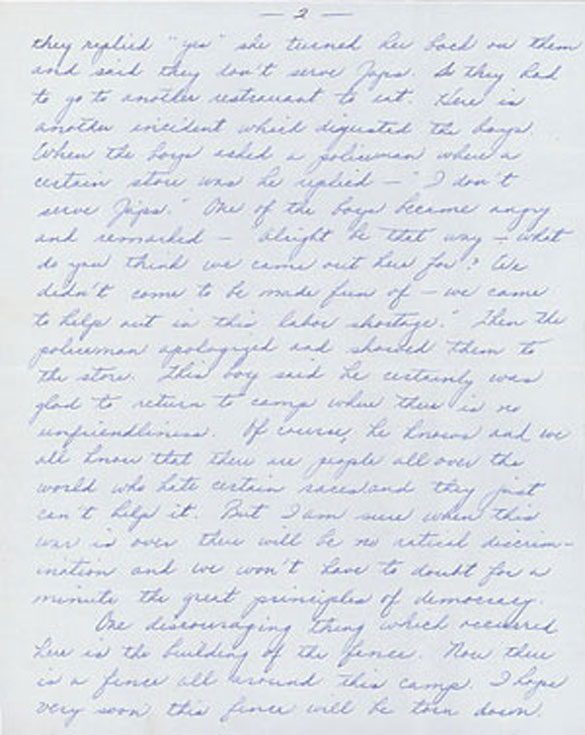 — 2 —
they replied "yes" she turned her back on them
and said they don't serve Japs. So they had
to go to another restaurant to eat. Here is
another incident which disgusted the boys.
When the boys asked a policeman where a
certain store was he replied — "I don't
serve Japs." One of the boys became angry
and remarked — Alright be that way — what
do you think we came out here for? We
didn't come to be made fun of — we came
to help out in this labor shortage." Then the
policeman apologized and showed them to
the store. This boy said he certainly was
glad to return to camp where there is no
unfriendliness. Of course, he knows and we
all know that there are people all over the
world who hate certain races and they just
can't help it. But I am sure when this
war is over there will be no racial discrim-
ination and we won't have to doubt for a
minute the great principles of democracy.
One discouraging thing which occurred
here is the building of the fence. Now there
is a fence all around this camp. I hope
very soon this fence will be torn down.